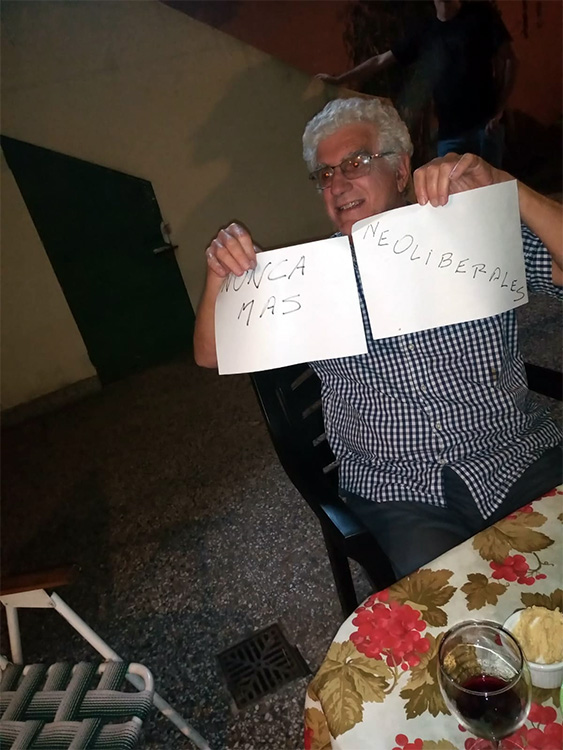 NUNCA
MAS
NEOLIBERALES